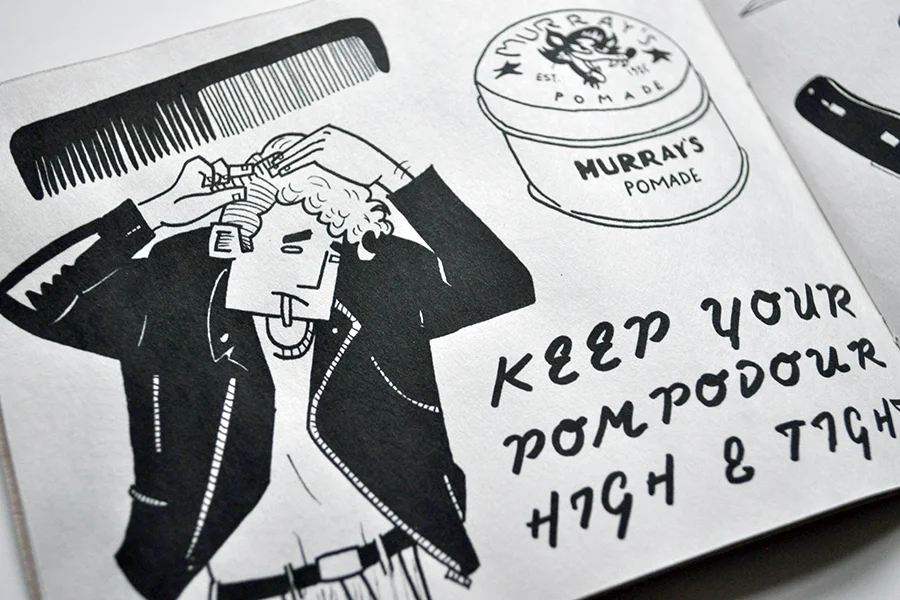 MURRAY'S
EST.
POMADE
MURRAY'S
POMADE
KEEP YOUR
POMPODOUR
HIGH & TIGHT